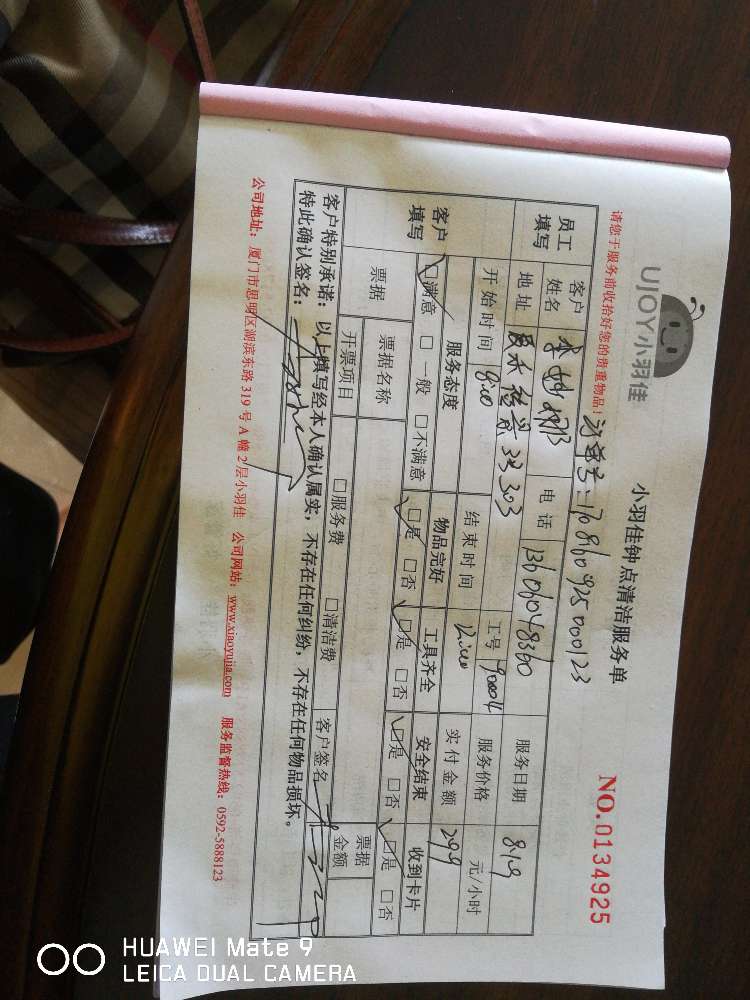 UJOY小羽佳
小羽佳钟点清洁服务单
NO.0134925
请您于服务前收拾好您的贵重物品!
员工填写
客户姓名
电话 13606048360
服务日期 8.19
地址
33 303
工号 90014
服务价格 元/小时
客户填写
开始时间 8:00
结束时间 12:00
实付金额 299
服务态度 物品完好 工具齐全 安全结束 收到卡片
□满意 □一般 □不满意 □是 □否 □是 □否 □是 □否 □是 □否
票据
票据名称
票据金额
开票项目 □服务费 □清洁费 客户签名
客户特别承诺:以上填写经本人确认属实,不存在任何纠纷,不存在任何物品损坏。
特此确认签名:
公司地址:厦门市思明区湖滨东路319号A幢2层小羽佳 公司网站:www.xiaoyujia.com 服务监督热线:0592-5888123
HUAWEI Mate 9
LEICA DUAL CAMERA